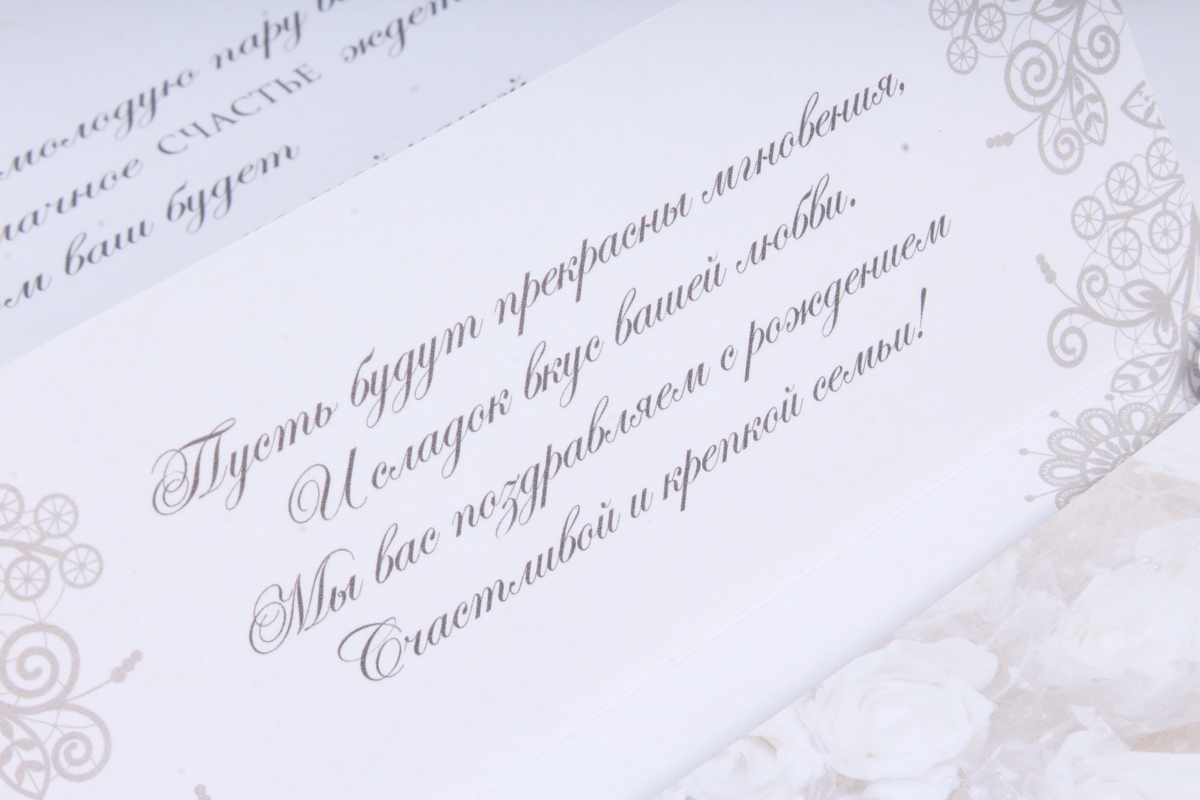 молодую пару
СЧАСТЬЕ ждет
ваш будет
Пусть будут прекрасны мгновения,
И сладок вкус вашей любви.
Мы вас поздравляем с рождением
Счастливой и крепкой семьи!